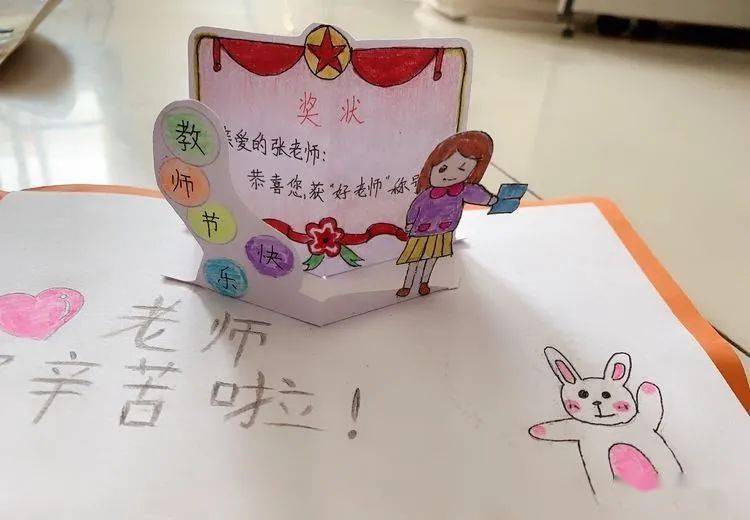 奖状
亲爱的张老师：
恭喜您,获"好老师"称号
教师节快乐
老师
辛苦啦！